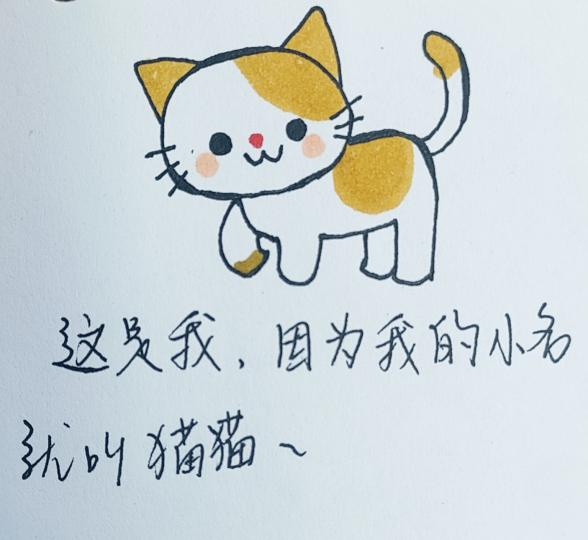 这是我，因为我的小名
就叫猫猫～